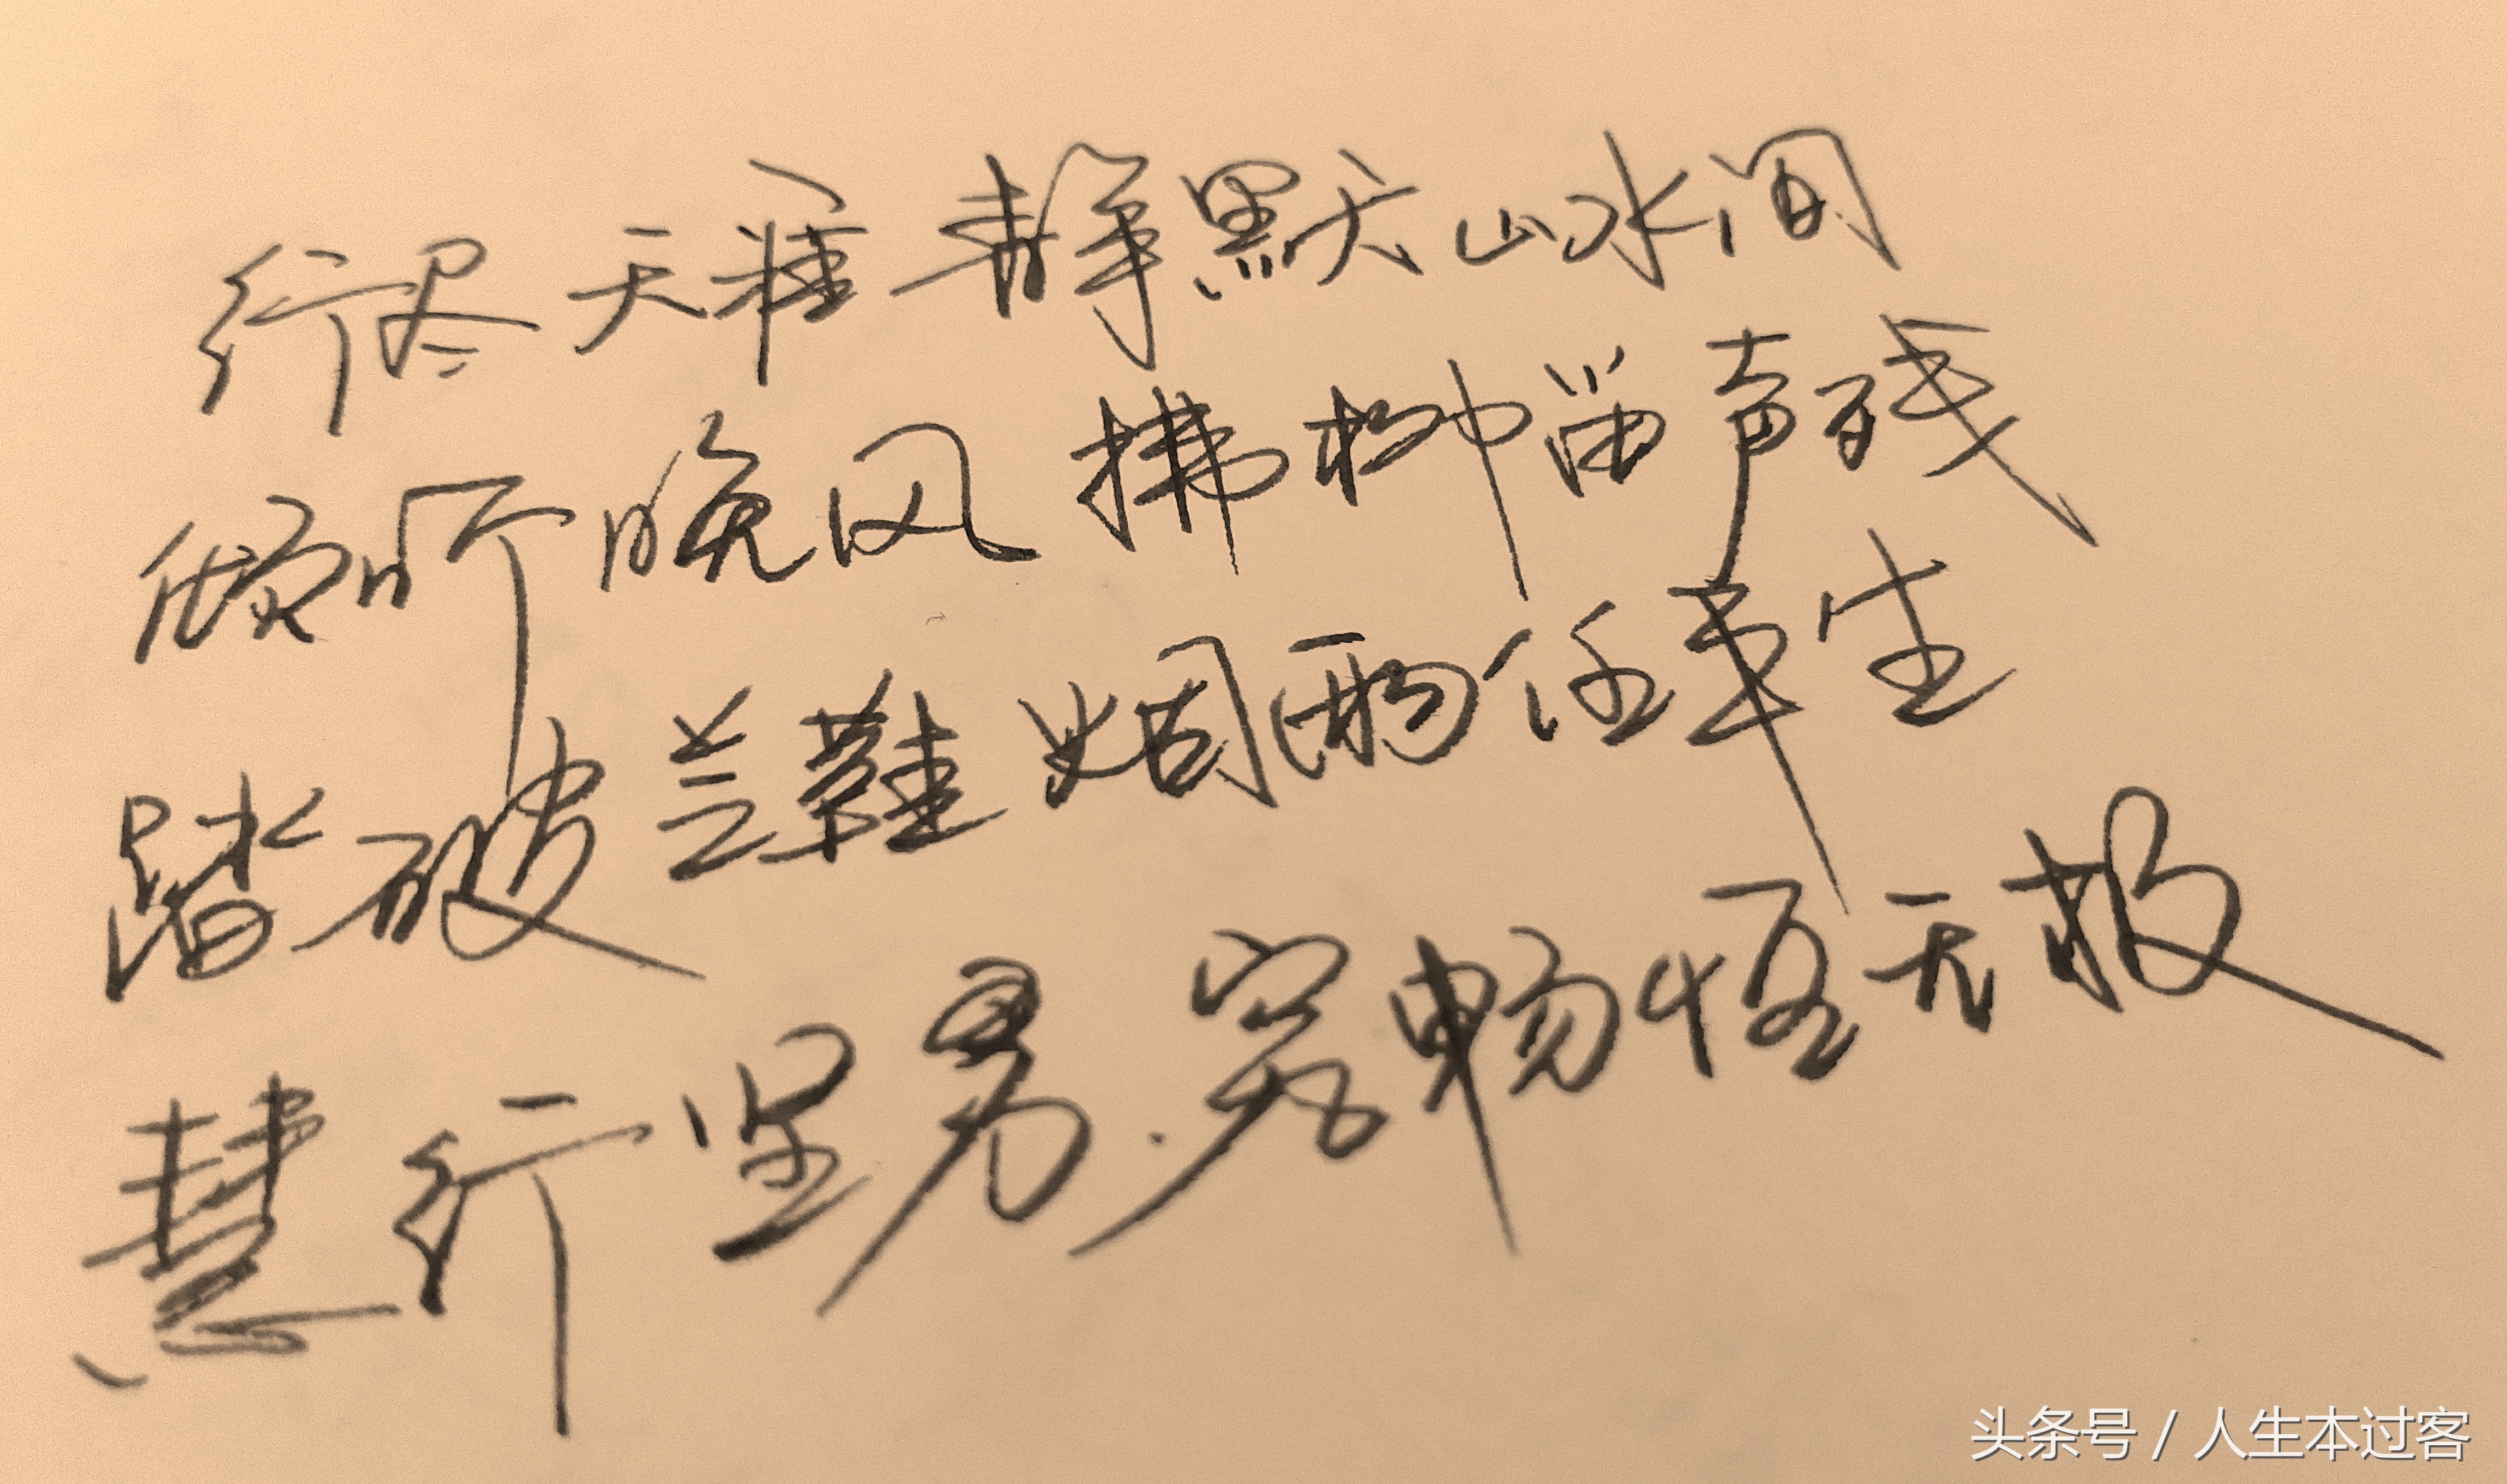 行尽天涯 静默山水间
倾听晚风 拂柳笛声残
踏破芒鞋 烟雨任平生
慧行坚勇 究畅恒无极
头条号 / 人生本过客